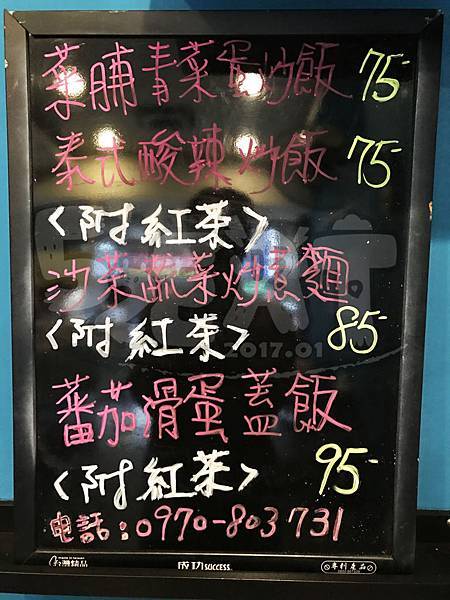 菜脯青菜蛋炒飯 75-
泰式酸辣炒飯 75-
<附紅茶>
沙茶蔬菜炒意麵
<附紅茶> 85-
2017.01
蕃茄滑蛋蓋飯
<附紅茶> 95-
電話:0970-803731
成功 SUCCESS.
專利產品